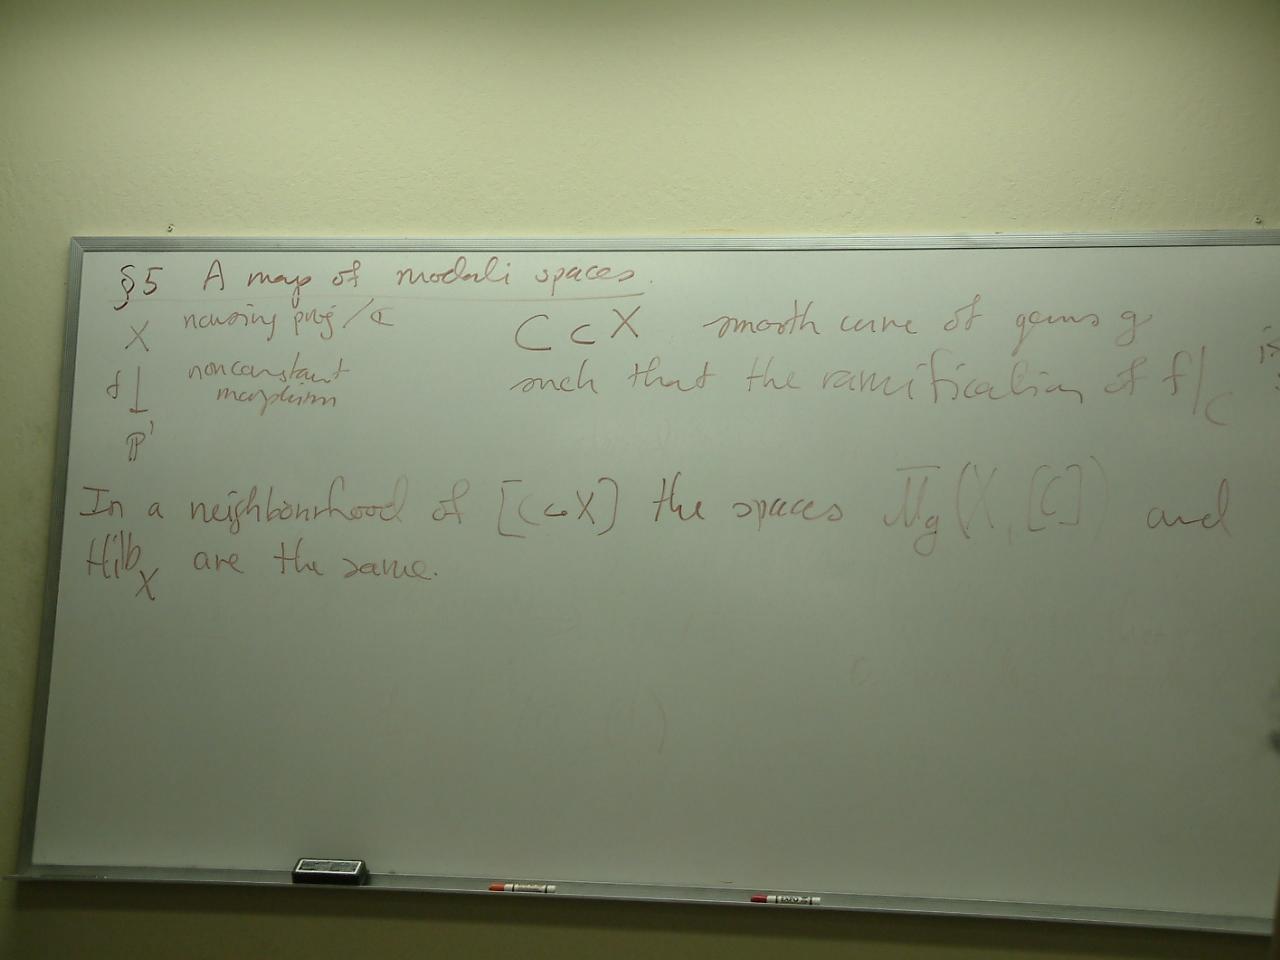 §5 A map of moduli spaces.
X nonsing proj/ℂ
f↓ nonconstant
morphism
ℙ¹
C ⊂ X smooth curve of genus g
such that the ramification of f|_C
In a neighbourhood of [C ⊂ X] the spaces M̅_g(X, [C]) and
Hilb_X are the same.